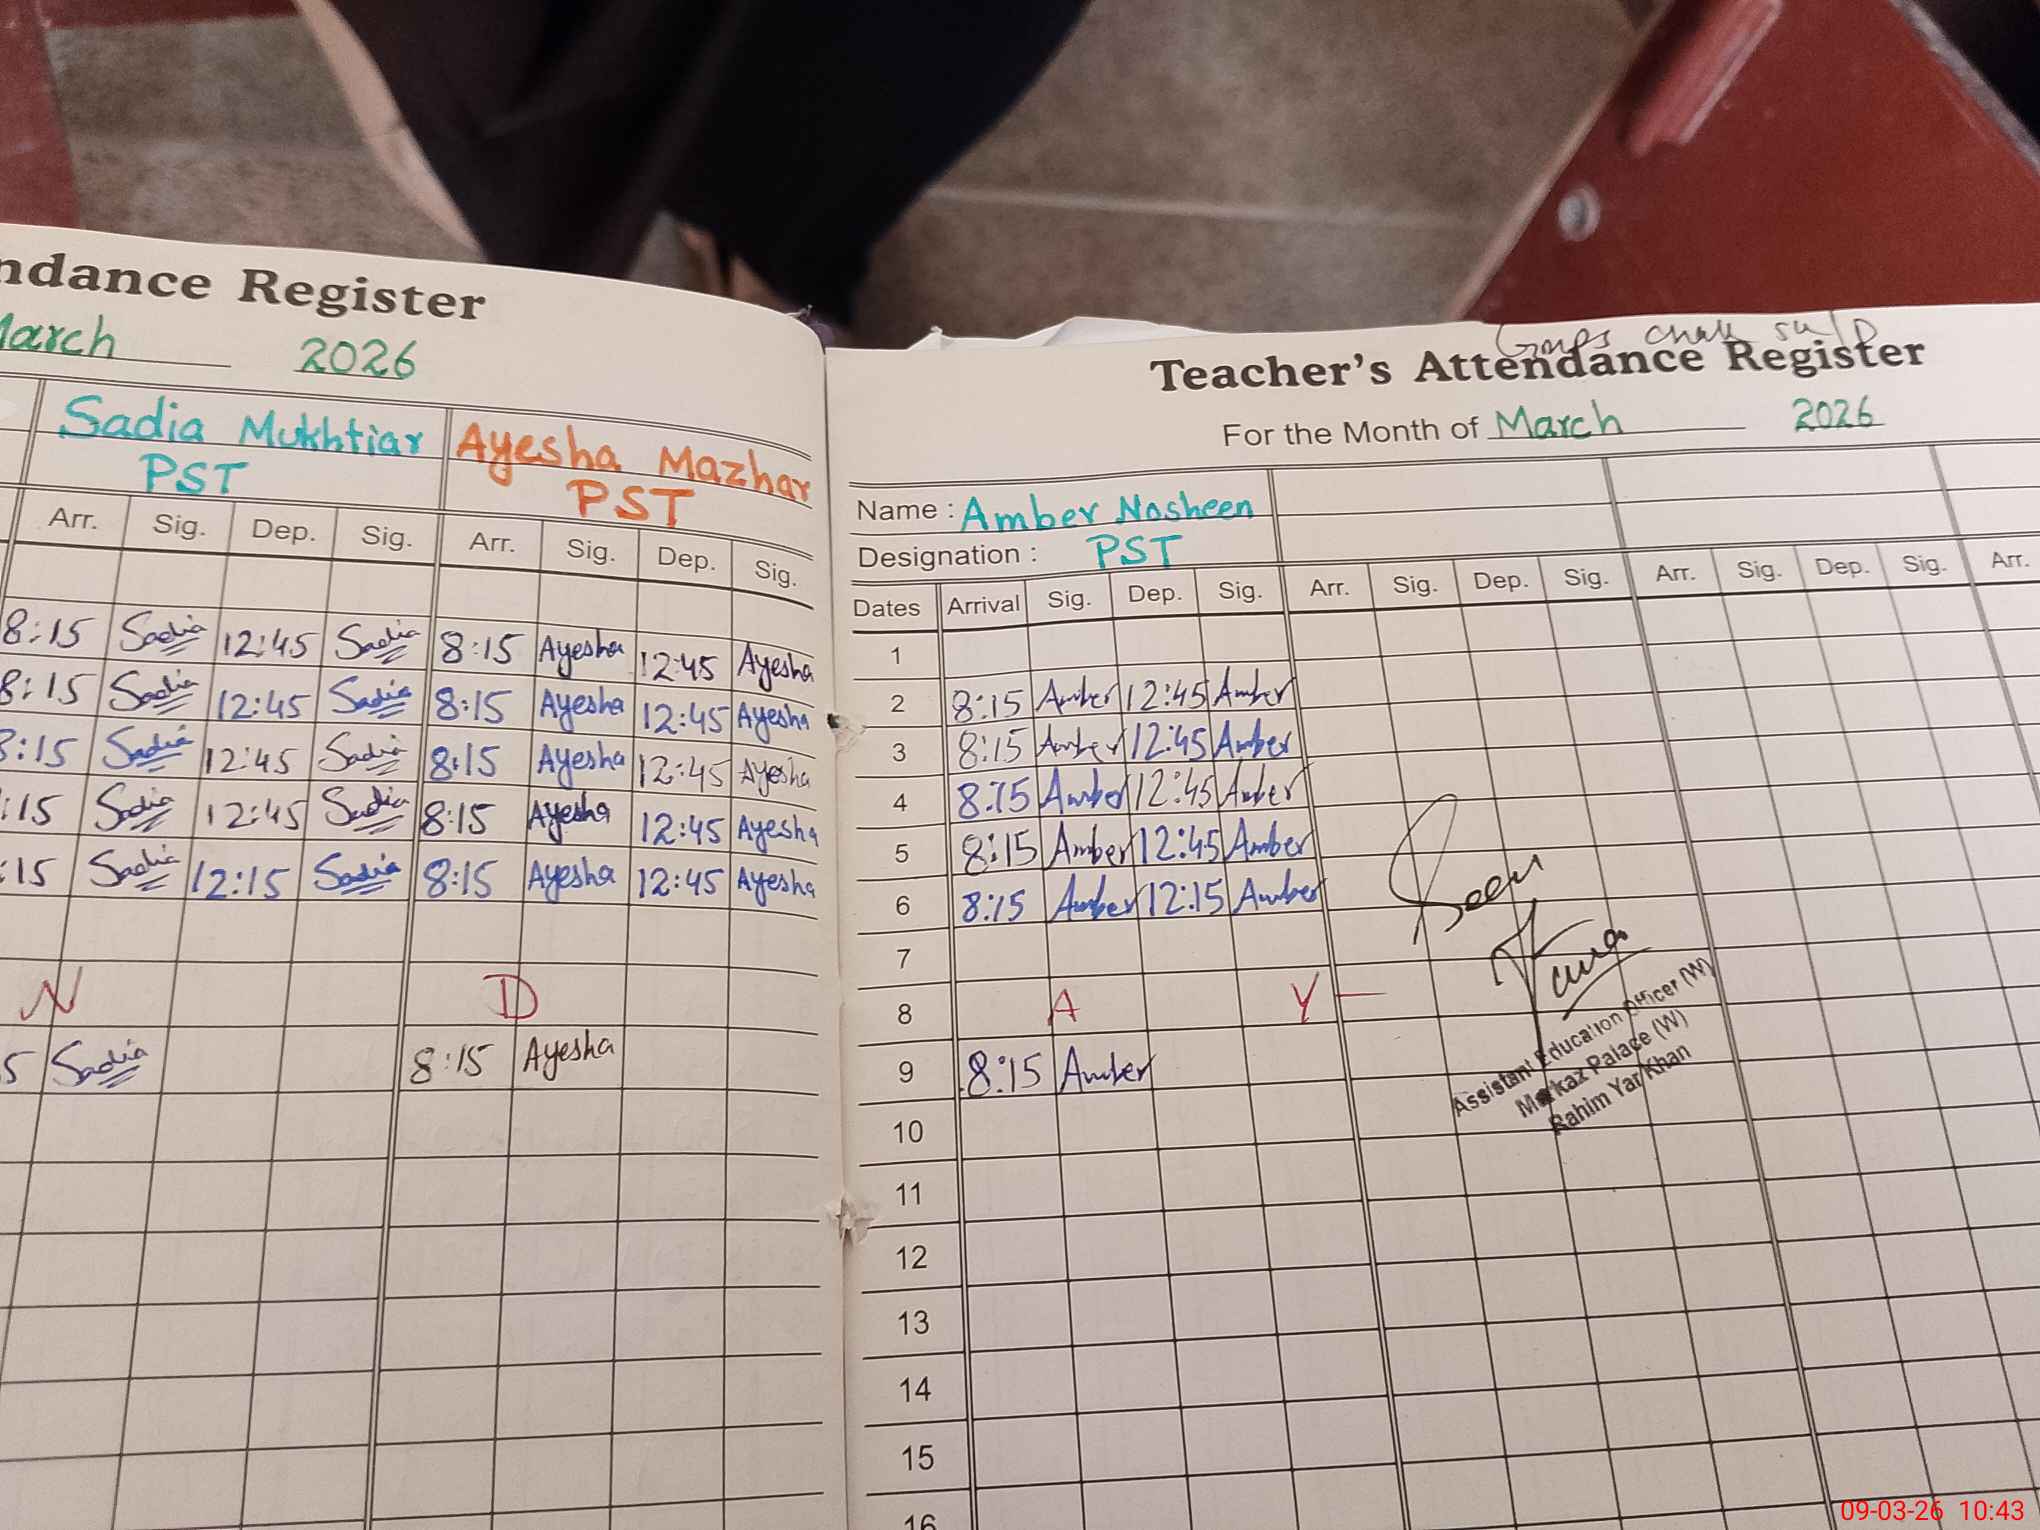 ndance Register
March 2026
Sadia Mukhtiar Ayesha Mazhar
PST PST
Arr. Sig. Dep. Sig. Arr. Sig. Dep. Sig.
8:15 Sadia 12:45 Sadia 8:15 Ayesha 12:45 Ayesha
8:15 Sadia 12:45 Sadia 8:15 Ayesha 12:45 Ayesha
8:15 Sadia 12:45 Sadia 8:15 Ayesha 12:45 Ayesha
:15 Sadia 12:45 Sadia 8:15 Ayesha 12:45 Ayesha
:15 Sadia 12:15 Sadia 8:15 Ayesha 12:45 Ayesha
N D
5 Sadia 8:15 Ayesha
Teacher's Attendance Register
For the Month of March 2026
Name : Amber Nosheen
Designation : PST
Dates Arrival Sig. Dep. Sig. Arr. Sig. Dep. Sig. Arr. Sig. Dep. Sig. Arr.
1
2 8:15 Amber 12:45 Amber
3 8:15 Amber 12:45 Amber
4 8:15 Amber 12:45 Amber
5 8:15 Amber 12:45 Amber
6 8:15 Amber 12:15 Amber
7
8 A Y —
9 8:15 Amber
10
11
12
13
14
15
16
Seen
Assistant Education Officer (W)
Markaz Palace (W)
Rahim Yar Khan
09-03-26 10:43